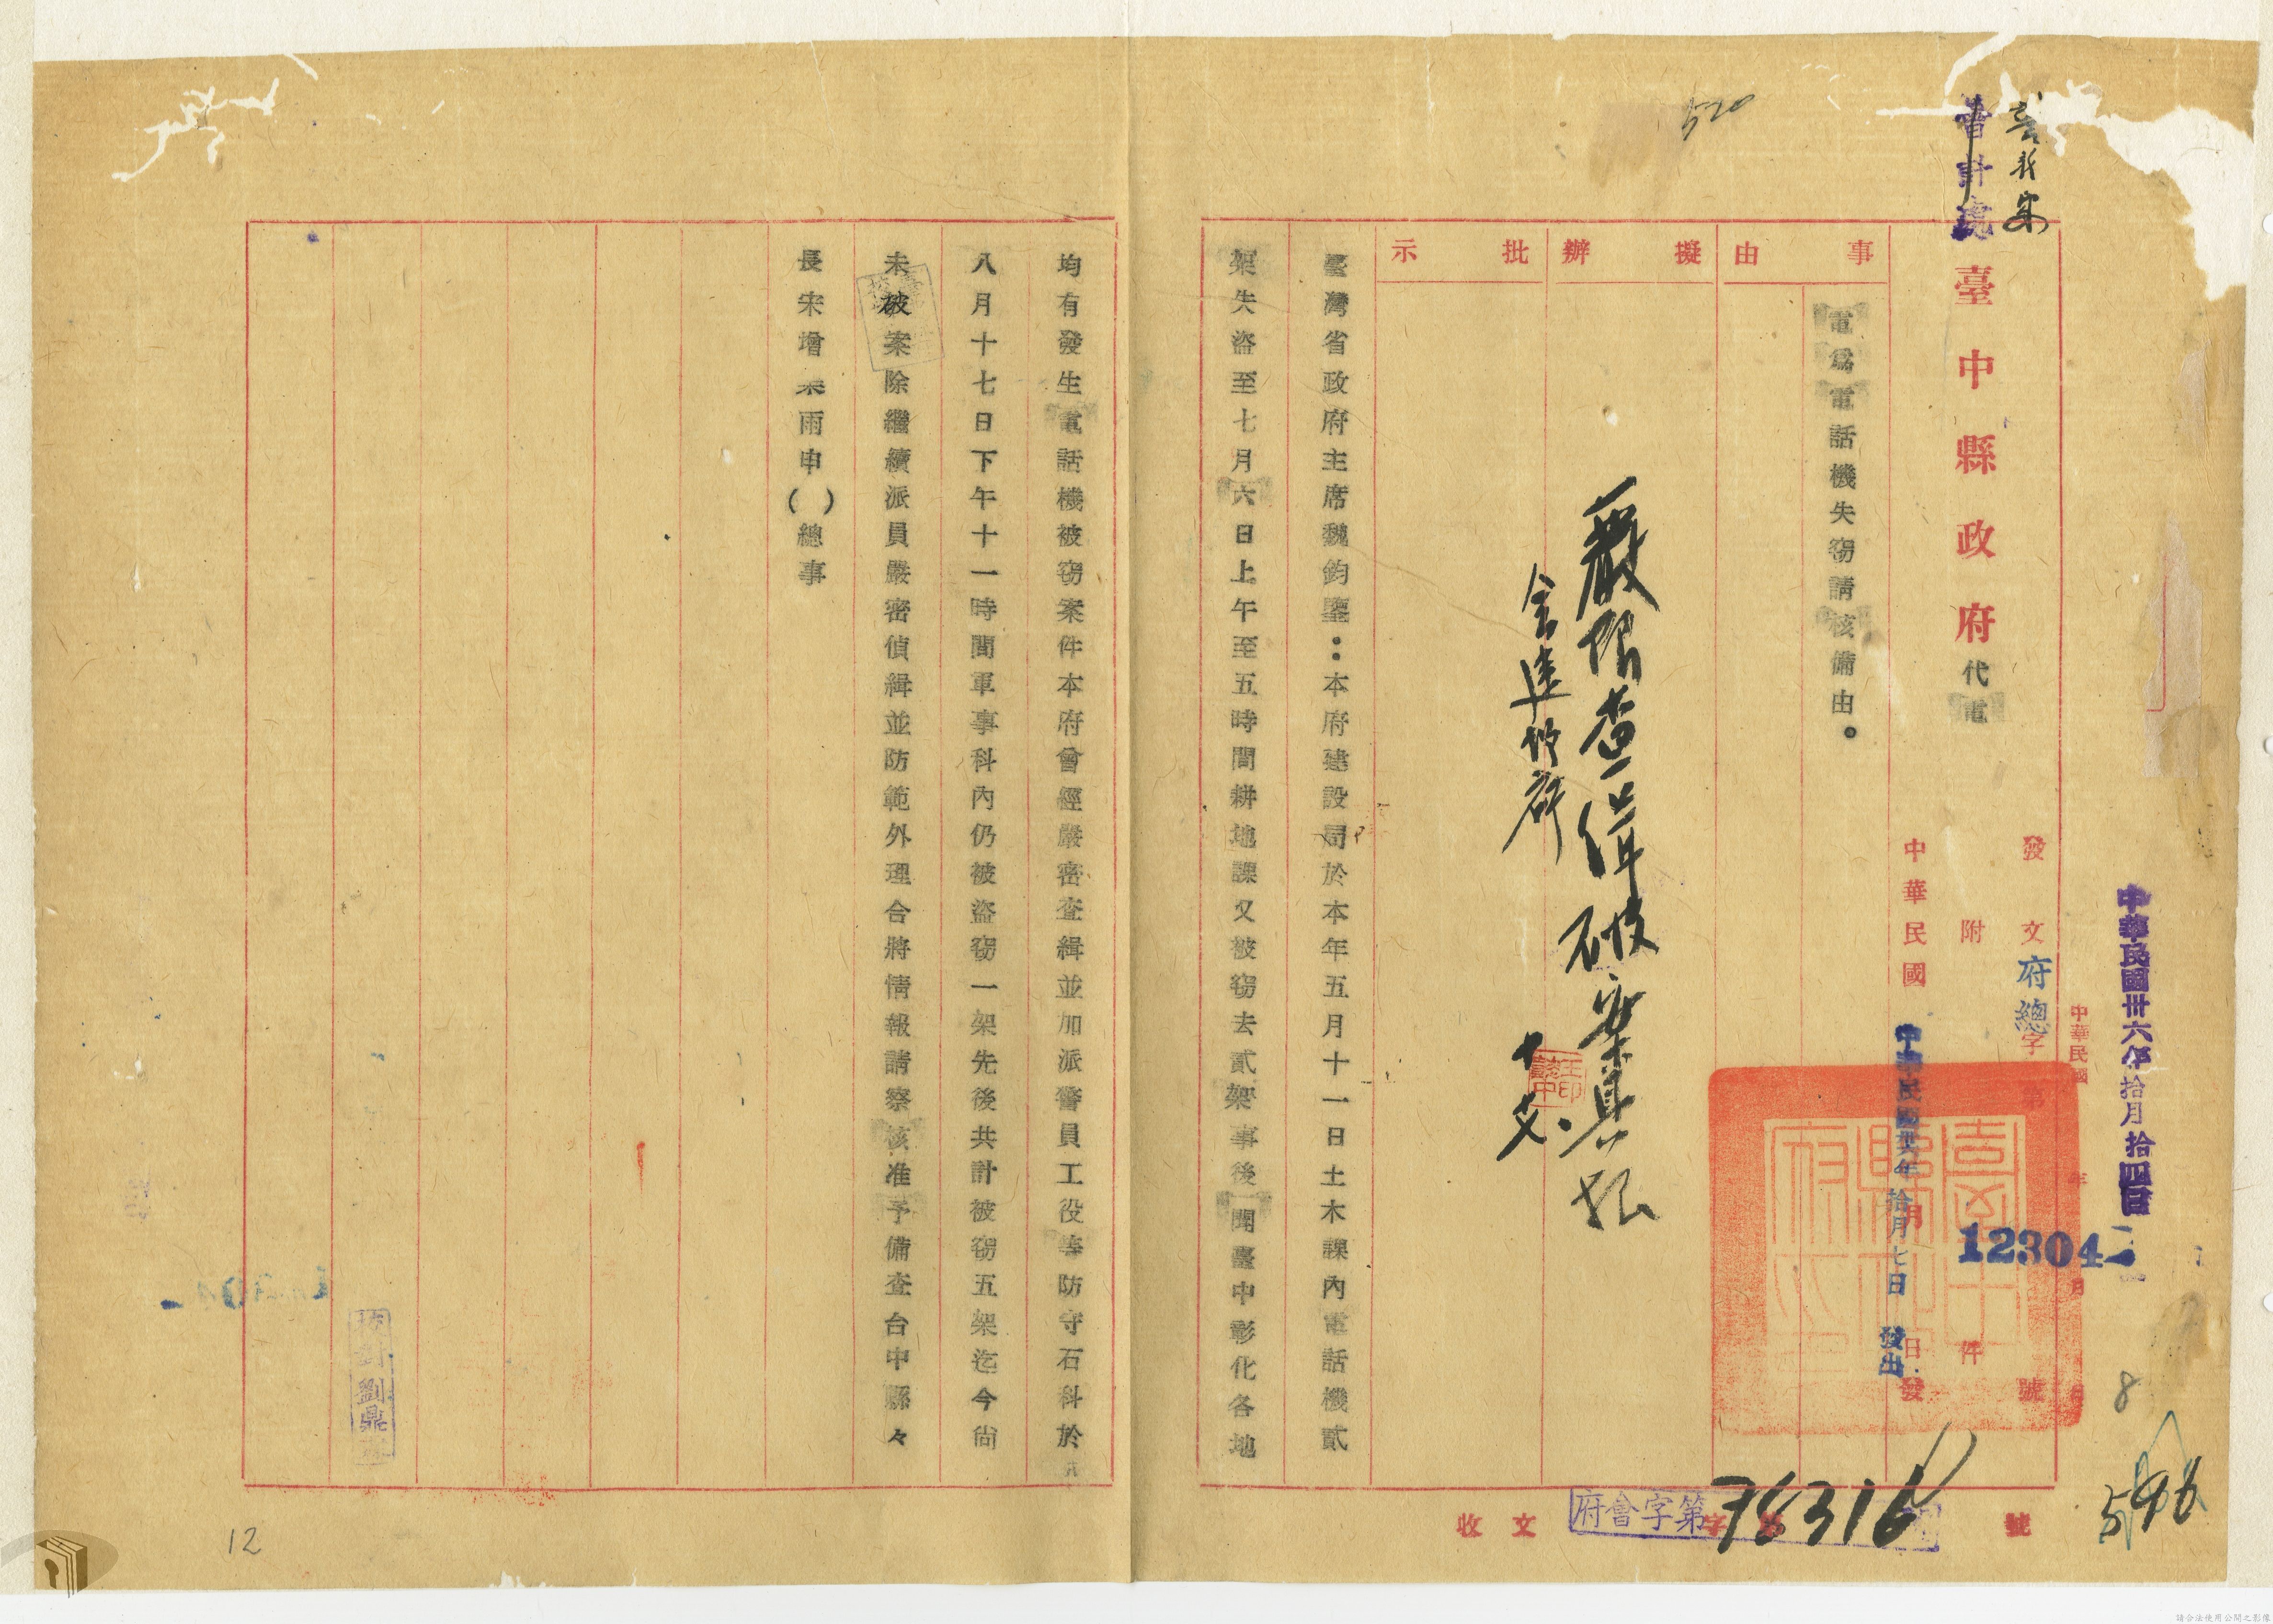 會計處
臺中縣政府代電
發文府總字第號
附件
中華民國卅六年拾月拾四日
12304
中華民國年月日發
中華民國卅六年拾月七日發出
中華民國年月
事由
電為電話機失竊請核備由。
擬辦
批示
嚴限查緝破案具報
臺灣省政府主席魏鈞鑒：本府建設局於本年五月十一日土木課內電話機貳
架失盜至七月六日上午至五時間耕地課又被竊去貳架事後聞臺中彰化各地
均有發生電話機被竊案件本府曾經嚴密查緝並加派警員工役等防守石科於
八月十七日下午十一時間軍事科內仍被盜竊一架先後共計被竊五架迄今尚
未破案除繼續派員嚴密偵緝並防範外理合將情報請察核准予備查台中縣々
長宋增榘雨申（ ）總事
收文字號
府會字第78316號
520
8
598
12
請合法使用公開之影像